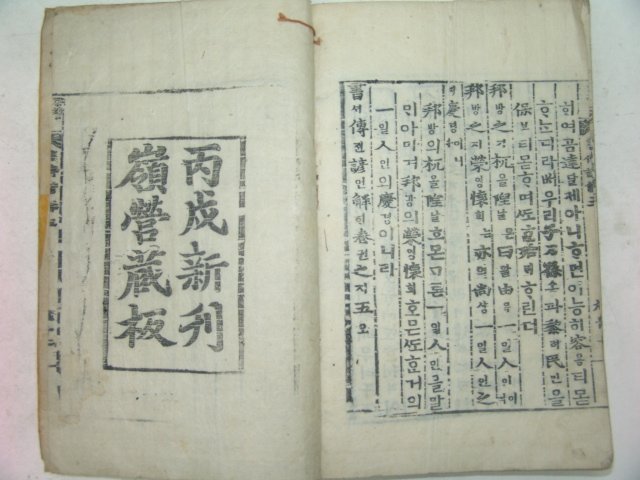 ᄒᆞ여곰達달케아니ᄒᆞ면이能히容용티몯
ᄒᆞᄂᆞᆫ디라ᄡᅥ우리子ᄌᆞ孫손과黎려民민을
保보티몯ᄒᆞ며ᄯᅩᄀᆞᆯ온殆ᄐᆡᄒᆞ린뎌
邦방之지杌올隉얼은曰왈由유一일人인이니
邦방之지榮영懷회ᄂᆞᆫ亦역尙샹一일人인之
지慶경이니
邦방의杌올隉얼호믄ᄀᆞᆯ온一일人인을말
믜아미며邦방의榮영懷회호믄ᄯᅩ호거의
一일人인의慶경이니라
書셔傳젼諺언解ᄒᆡ卷권之지五오
丙戌新刊
嶺營藏板